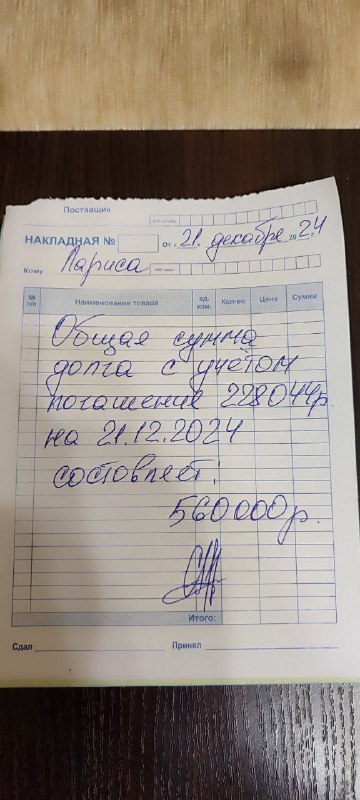 Поставщик
НАКЛАДНАЯ № От « 21 » декабря 2024 г.
Кому Лариса
№ п/п Наименование товара ед. изм. Кол-во Цена Сумма
Общая сумма
долга с учётом
погашения 228044р
на 21.12.2024
составляет:
560000р.
Итого:
Сдал Принял